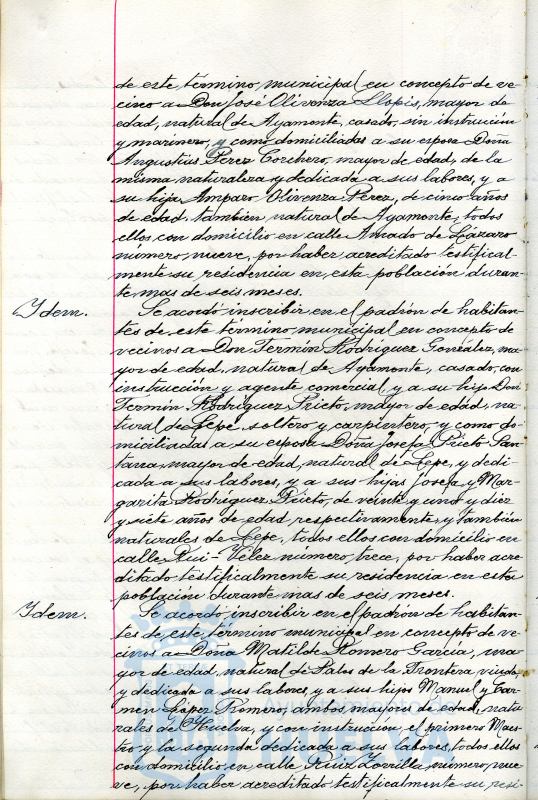 de este término municipal en concepto de ve-
cinos a Don José Olivenza Llopis, mayor de
edad, natural de Ayamonte, casado, sin instrucción
y marinero, y como domiciliadas a su esposa Doña
Angustias Pérez Corchero, mayor de edad, de la
misma naturaleza y dedicada a sus labores, y a
su hija Amparo Olivenza Pérez, de cinco años
de edad, también natural de Ayamonte, todos
ellos con domicilio en calle Amado de Lázaro
número nueve, por haber acreditado testifical-
mente su residencia en esta población duran-
te mas de seis meses.
Idem. Se acordó inscribir en el padrón de habitan-
tes de este término municipal en concepto de
vecinos a Don Fermín Rodríguez González, ma-
yor de edad, natural de Ayamonte, casado, con
instrucción y agente comercial y a su hijo Don
Fermín Rodríguez Prieto, mayor de edad, na-
tural de Lepe, soltero y carpintero, y como do-
miciliadas a su esposa Doña Josefa Prieto San-
tana, mayor de edad, natural de Lepe, y dedi-
cada a sus labores, y a sus hijas Josefa y Mar-
garita Rodríguez Prieto, de veinte y una y diez
y siete años de edad respectivamente, y también
naturales de Lepe, todos ellos con domicilio en
calle Rui-Vélez número trece, por haber acre-
ditado testificalmente su residencia en esta
población durante mas de seis meses.
Idem. Se acordó inscribir en el padrón de habitan-
tes de este término municipal en concepto de ve-
cinos a Doña Matilde Romero García, ma-
yor de edad, natural de Palos de la Frontera viuda,
y dedicada a sus labores, y a sus hijos Manuel y Car-
men López Romero, ambos mayores de edad, natu-
rales de Huelva, y con instrucción, el primero Maes-
tro y la segunda dedicada a sus labores, todos ellos
con domicilio en calle Ruiz Zorrilla número nue-
ve, por haber acreditado testificalmente su resi-